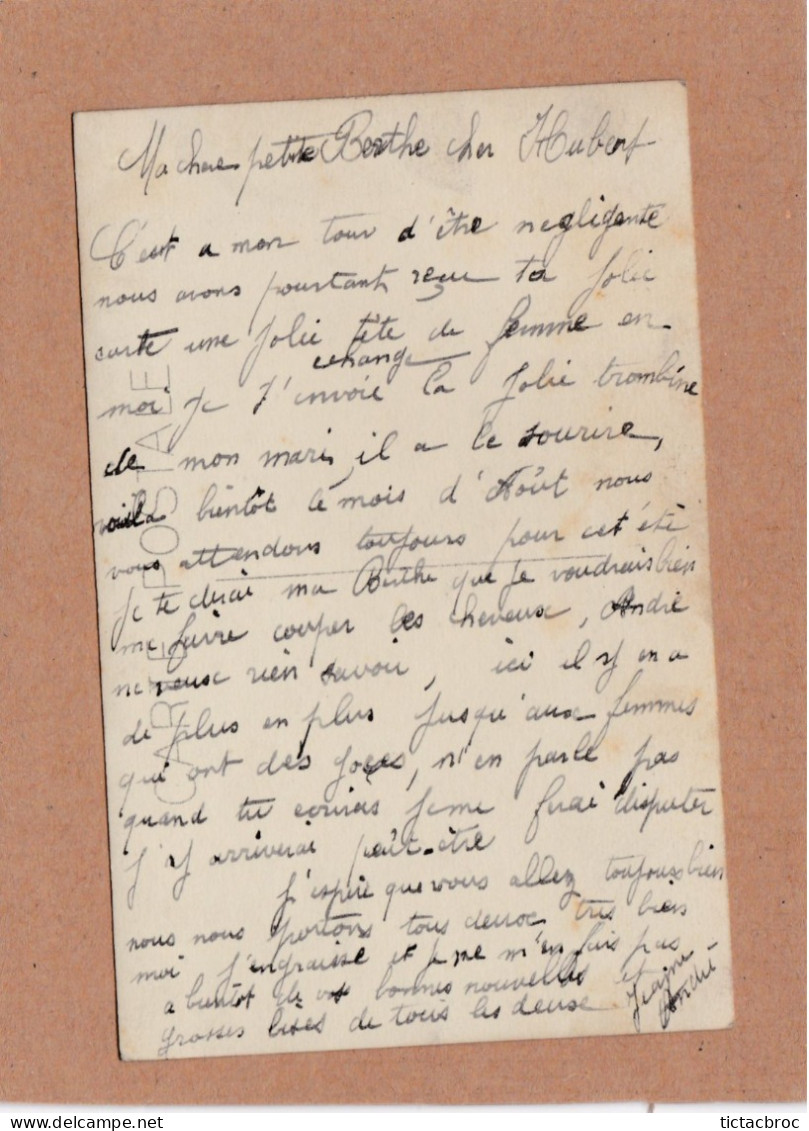 Ma chere petite Berthe cher Hubert
C'est a mon tour d'être negligente
nous avons pourtant reçu ta jolie
carte une jolie tête de femme en
echange
moi je t'envoie la jolie trombine
de mon mari, il a le sourire,
voila bientôt le mois d'Août nous
vous attendons toujours pour cet été
je te dirai ma Berthe que je voudrais bien
me faire couper les cheveux, André
ne veux rien savoir, ici il y en a
de plus en plus jusqu'aux femmes
qui ont des goces, n'en parle pas
quand tu ecriras je me ferai disputer
j'y arriverai peût-être
j'espère que vous allez toujours bien
nous nous portons tous deux très bien
moi j'engraisse et je ne m'en fais pas
a bientot de vos bonnes nouvelles et
grosses bises de tous les deuse Jeanne
André
CARTE POSTALE
tictacbroc